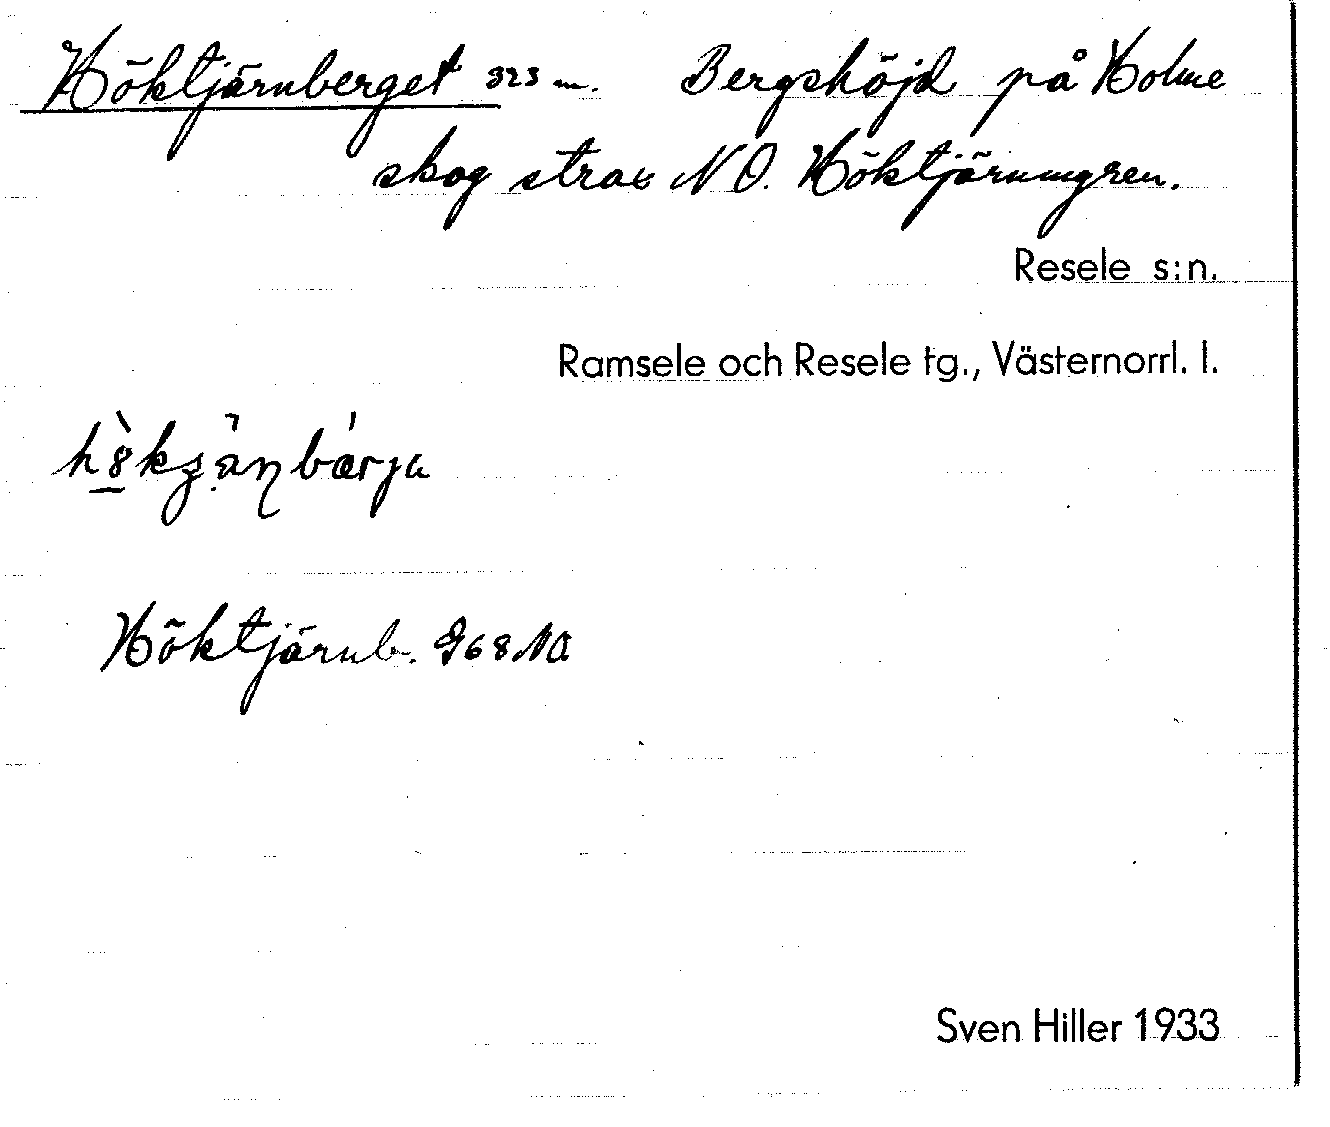 Höktjärnberget 323 m. Bergshöjd på Holme
skog strax NO. Höktjärnmyren.
Resele s:n.
Ramsele och Resele tg., Västernorrl. l.
Höktjärnb. 968 NO
Sven Hiller 1933